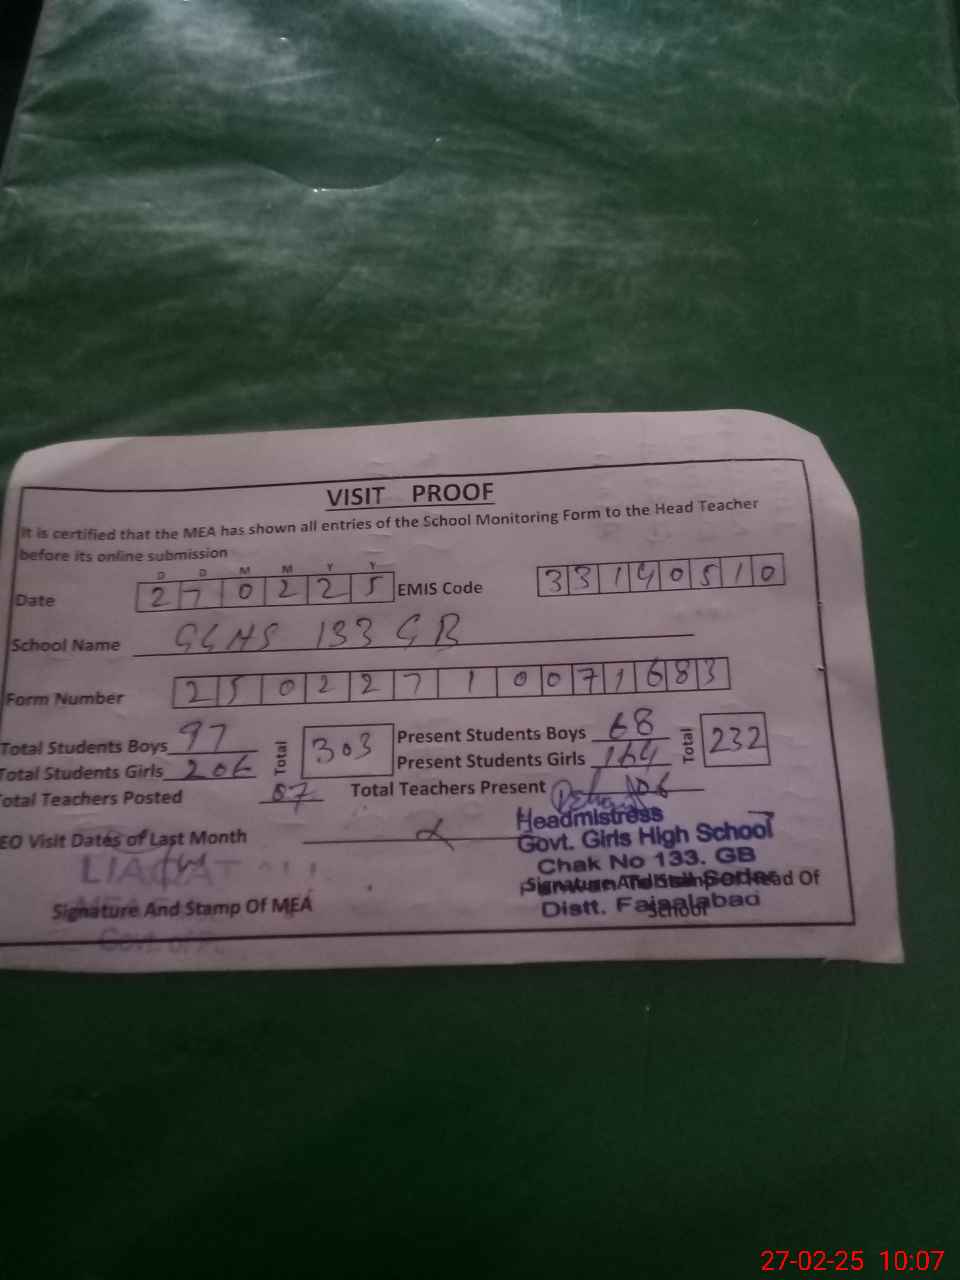 VISIT PROOF
It is certified that the MEA has shown all entries of the School Monitoring Form to the Head Teacher
before its online submission
D D M M Y Y
Date 2 7 0 2 2 5 EMIS Code 3 3 1 4 0 5 1 0
School Name GGHS 133 GB
Form Number 2 5 0 2 2 7 1 0 0 7 1 6 8 3
Total Students Boys 97 Total 303 Present Students Boys 68 Total 232
Total Students Girls 206 Present Students Girls 164
Total Teachers Posted 07 Total Teachers Present 06
EO Visit Dates of Last Month
Headmistress
Govt. Girls High School
Chak No 133. GB
LIAQAT
Signature And Stamp Of MEA
Signature And Stamp Of Head Of
School
Distt. Faisalabad
27-02-25 10:07